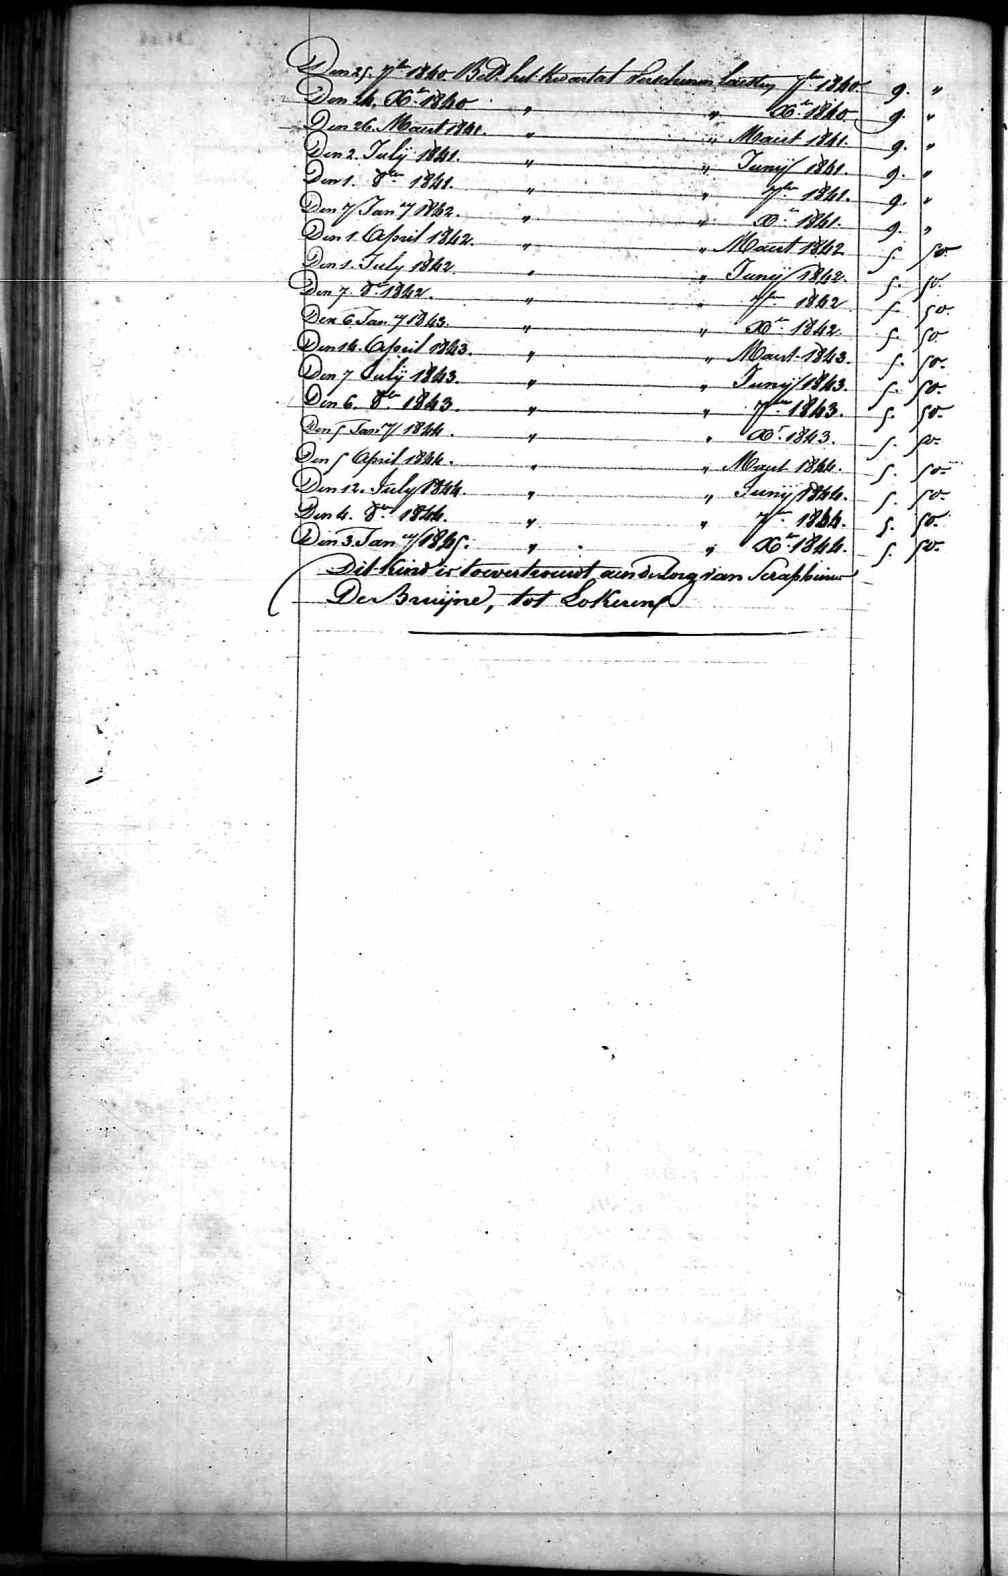 Den 25. 7br 1840 Betd. het Kwartaal verschenen laetsten 7ber 1840 9. "
Den 24. Xr 1840 " " Xr 1840 9. "
Den 26. Maart 1841. " " Maart 1841. 9. "
Den 2. Julij 1841. " " Junij 1841. 9. "
Den 1. 8ber 1841. " " 7ber 1841. 9. "
Den 7 Jany 1842. " " Xr 1841. 9. "
Den 1. April 1842. " " Maart 1842 5. 50.
Den 1. July 1842. " " Junij 1842. 5. 50.
Den 7. 8r 1842. " " 7ber 1842 5. 50.
Den 6. Jany 1843. " " Xr 1842. 5. 50.
Den 14. April 1843. " " Maart 1843. 5. 50.
Den 7 Julij 1843. " " Junij 1843. 5. 50.
Den 6. 8ber 1843. " " 7ber 1843. 5. 50.
Den 5 Jany 1844. " " Xr 1843. 5. 50.
Den 5 April 1844. " " Maart 1844. 5. 50.
Den 12. July 1844. " " Junij 1844. 5. 50.
Den 4. 8r 1844. " " 7r 1844. 5. 50.
Den 3. Jany 1845. " " Xr 1844. 5. 50.
Dit Kind is toevertrouwt aen de zorg van Seraphinus
De Bruijne, tot Lokeren